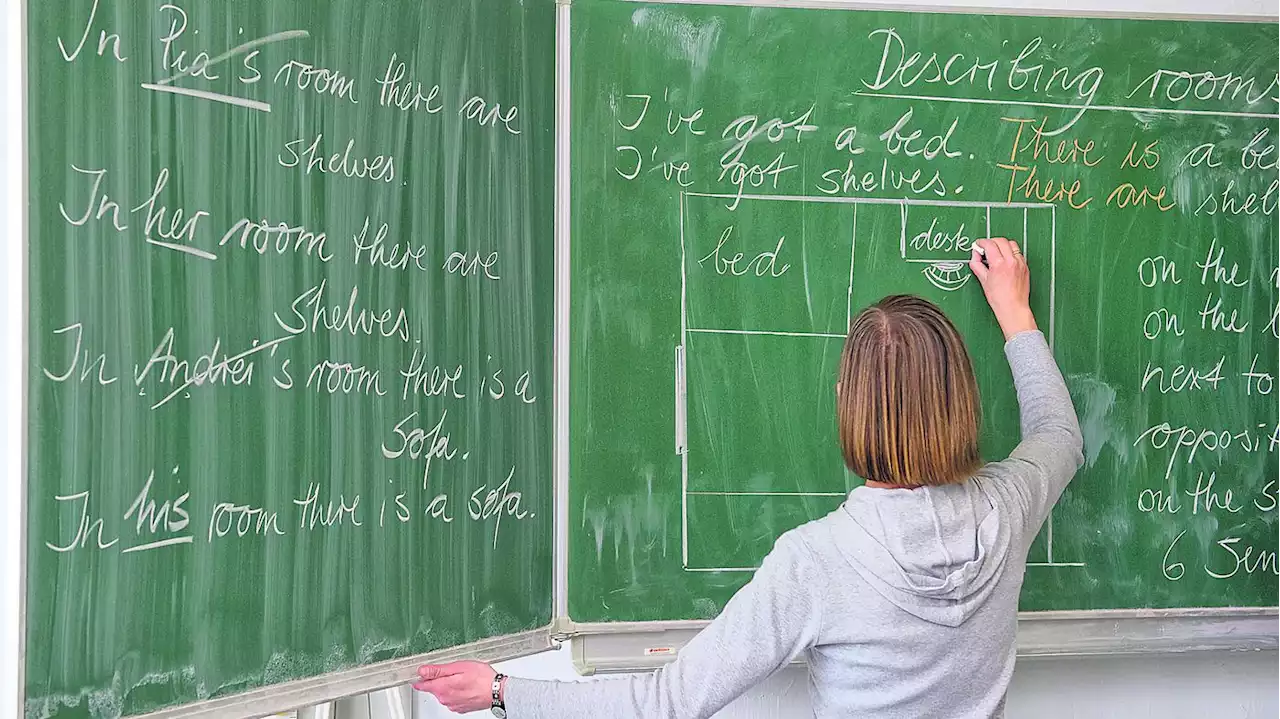 In Pia's room there are
shelves.
In her room there are
shelves.
In Andrei's room there is a
sofa.
In his room there is a sofa.
Describing rooms
I've got a bed. There is a be
I've got shelves. There are shel
bed
desk
on the
on the
next to
opposit
on the s
6 Sen